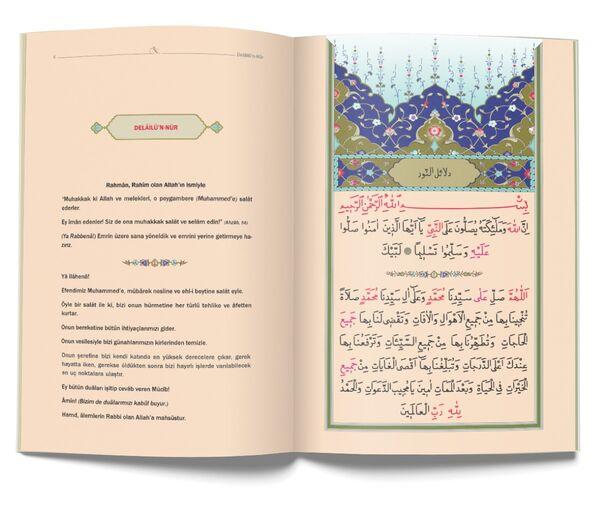 6
Delâilü'n-Nûr
DELÂİLÜ'N-NÛR
Rahmân, Rahîm olan Allah'ın ismiyle
"Muhakkak ki Allah ve melekleri, o peygambere (Muhammed'e) salât
ederler.
Ey îmân edenler! Siz de ona muhakkak salât ve selâm edin!" (Ahzâb, 56)
(Ya Rabbenâ!) Emrin üzere sana yöneldik ve emrini yerine getirmeye ha-
zırız.
Yâ İlâhenâ!
Efendimiz Muhammed'e, mübârek nesline ve ehl-i beytine salât eyle.
Öyle bir salât ile ki, bizi onun hürmetine her türlü tehlike ve âfetten
kurtar.
Onun bereketine bütün ihtiyaçlarımızı gider.
Onun vesilesiyle bizi günahlarımızın kirlerinden temizle.
Onun şerefine bizi kendi katında en yüksek derecelere çıkar, gerek
hayatta iken, gerekse öldükten sonra bizi hayırlı işlerde varılabilecek
en uç noktalara ulaştır.
Ey bütün duâları işitip cevâb veren Mücîb!
Âmîn! (Bizim de duâlarımızı kabûl buyur.)
Hamd, âlemlerin Rabbi olan Allah'a mahsûstur.
دلائل النور
بِسْمِ اللهِ الرَّحْمٰنِ الرَّحِيمِ
اِنَّ اللهَ وَمَلٰٓئِكَتَهُ يُصَلُّونَ عَلَى النَّبِيِّ يَٓا اَيُّهَا الَّذِينَ اٰمَنُوا صَلُّوا
عَلَيْهِ وَسَلِّمُوا تَسْلِيمًا ۞ لَبَّيْكَ
اَللّٰهُمَّ صَلِّ عَلٰى سَيِّدِنَا مُحَمَّدٍ وَعَلٰٓى اٰلِ سَيِّدِنَا مُحَمَّدٍ صَلَاةً
تُنْجِينَا بِهَا مِنْ جَمِيعِ الْاَهْوَالِ وَالْاٰفَاتِ وَتَقْضِى لَنَا بِهَا جَمِيعَ
الْحَاجَاتِ وَتُطَهِّرُنَا بِهَا مِنْ جَمِيعِ السَّيِّئَاتِ وَتَرْفَعُنَا بِهَا
عِنْدَكَ اَعْلَى الدَّرَجَاتِ وَتُبَلِّغُنَا بِهَا اَقْصَى الْغَايَاتِ مِنْ جَمِيعِ
الْخَيْرَاتِ فِى الْحَيَاةِ وَبَعْدَ الْمَمَاتِ اٰمِينَ يَا مُجِيبَ الدَّعَوَاتِ وَالْحَمْدُ
لِلهِ رَبِّ الْعَالَمِينَ